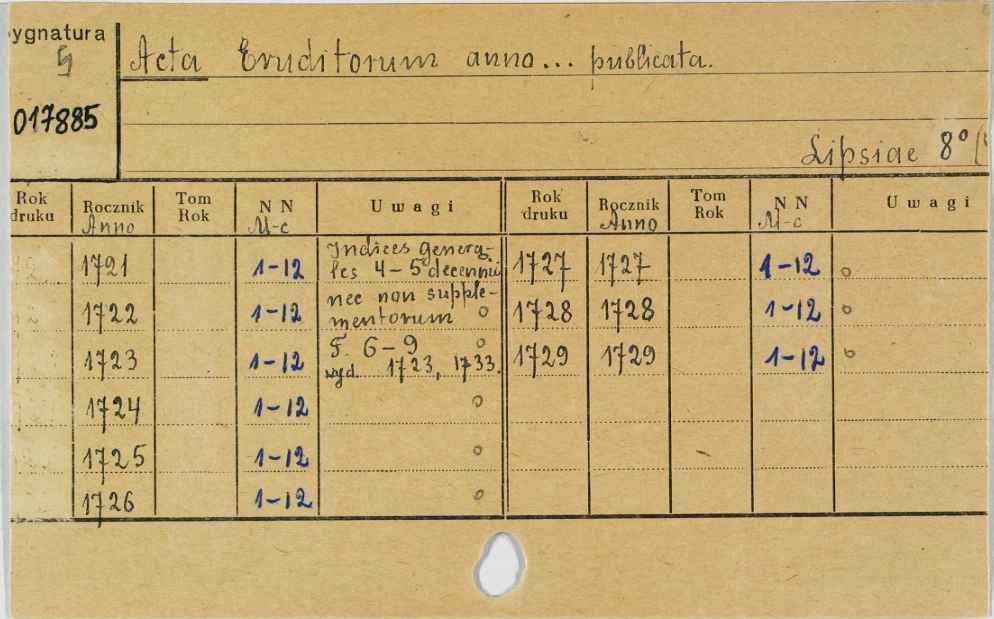 ygnatura
017885
Acta Eruditorum anno... publicata.
Lipsiae 8°
Rok druku Rocznik Anno Tom Rok N N M-c Uwagi Rok druku Rocznik Anno Tom Rok N N M-c Uwagi
1721 1-12 Indices genera- 1727 1727 1-12 o
les 4-5 decennii
nec non supple-
1722 1-12 mentorum o 1728 1728 1-12 o
1723 1-12 5. 6-9 o 1729 1729 1-12 o
wyd. 1723, 1733.
1724 1-12 o
1725 1-12 o
1726 1-12 o